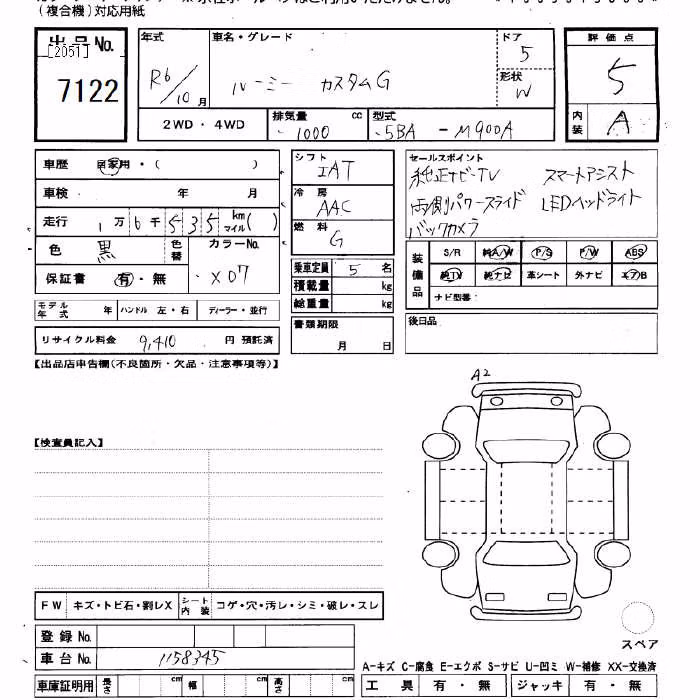 (複合機)対応用紙
出品No.
[2051]
7122
年式
R6/10月
車名・グレード
ルーミー カスタムG
ドア
5
形状
W
評価点
5
内装
A
2WD・4WD
排気量 1000 cc
型式 5BA - M900A
車歴 自家用・( )
車検 年 月
走行 1万6千535 km マイル( )
色 黒 色替
カラーNo.
X07
保証書 有・無
モデル年式 年 ハンドル 左・右 ディーラー・並行
リサイクル料金 9,410 円 預託済
シフト
IAT
冷房
AAC
燃料
G
乗車定員 5 名
積載量 kg
総重量 kg
書類期限
月 日
セールスポイント
純正ナビ・TV スマートアシスト
両側パワースライド LEDヘッドライト
バックカメラ
装備品
S/R 純A/W P/S P/W ABS
純TV 純ナビ 革シート 外ナビ エアB
ナビ型番:
後日品
【出品店申告欄(不良箇所・欠品・注意事項等)】
A2
【検査員記入】
FW キズ・トビ石・割レX シート内装 コゲ・穴・汚レ・シミ・破レ・スレ
登録No.
車台No. 1158345
車庫証明用 長さ cm 幅 cm 高さ cm
スペア
A-キズ C-腐食 E-エクボ S-サビ U-凹ミ W-補修 XX-交換済
工具 有・無 ジャッキ 有・無